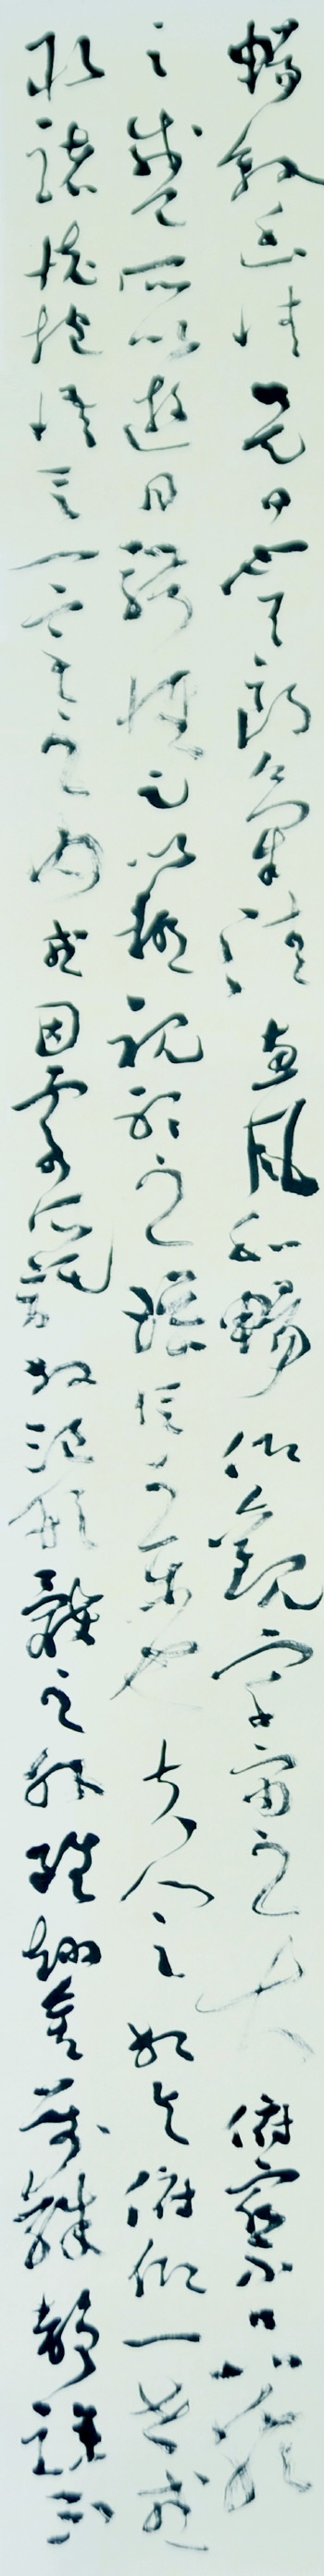 暢敘幽情是日也天朗氣清惠風和暢仰觀宇宙之大俯察品類
之盛所以遊目騁懷足以極視聽之娛信可樂也夫人之相與俯仰一世或
取諸懷抱悟言一室之內或因寄所託放浪形骸之外雖趣舍萬殊靜躁不